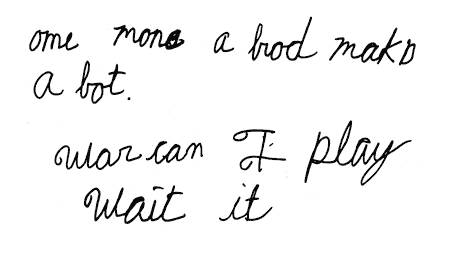 ome mone a brod makn
a bot.
war can I play
Wait it